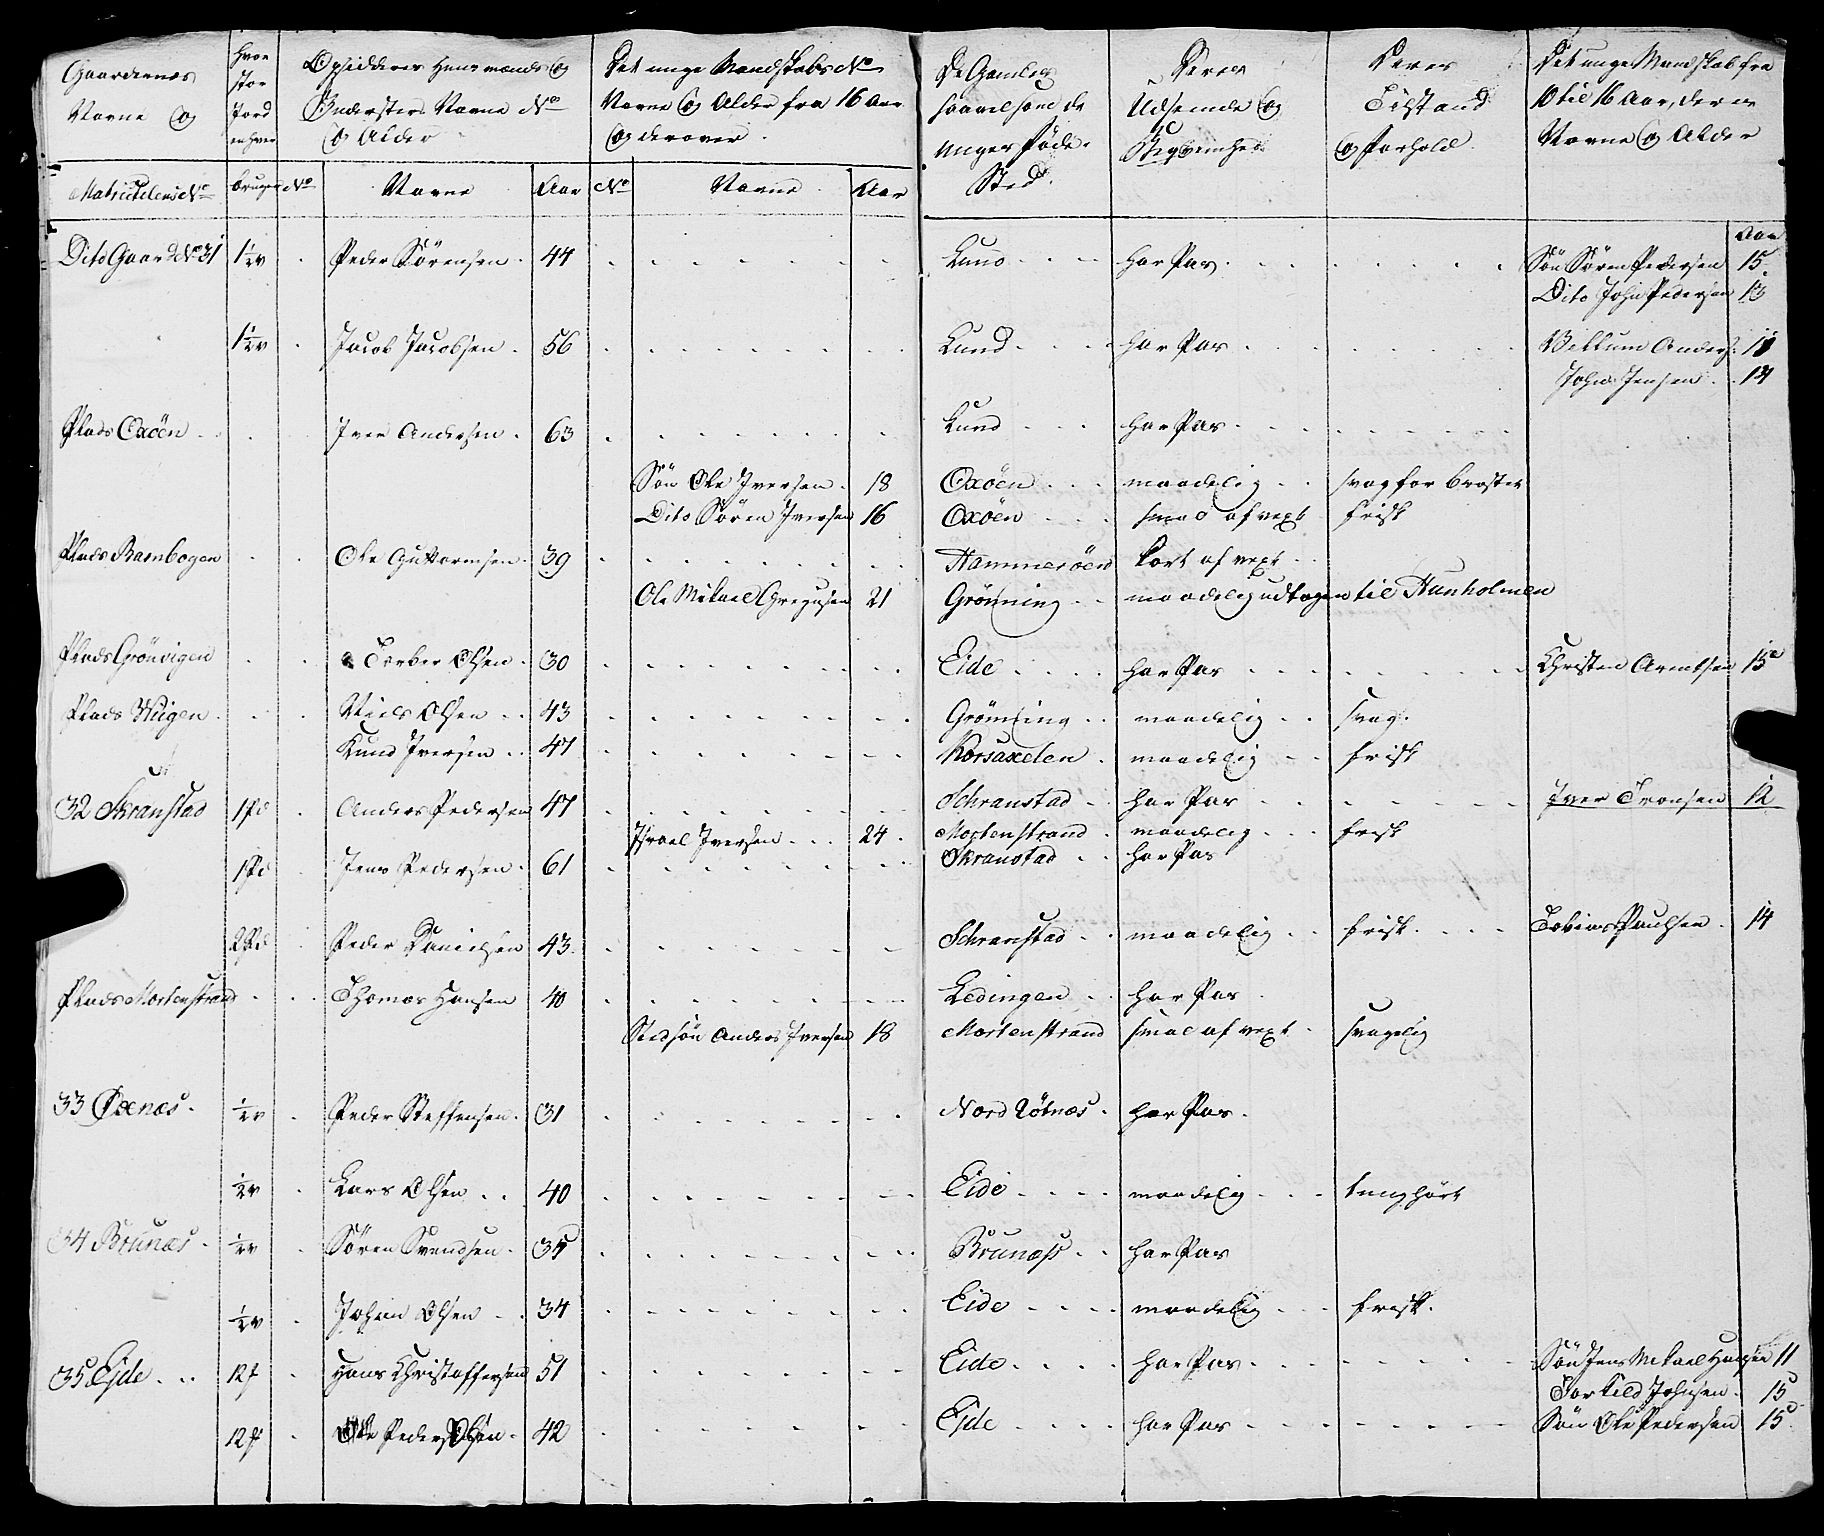 Gaardernes Navne og
Hvor stor Jord enhver
Opsidderes Huusmænds og Indersters Navne No og Alder
Det unge Mandskabs No Navne og Alder fra 16 Aar og derover.
De Gamles saavelsom de unges Føde-Sted.
Deres Udseende og
Deres Tilstand og Forhold.
Det unge Mandskab fra 10 til 16 Aar, deres Navne og Alder
Matriculens No bruger No Navne Aar No Navne Aar
Aar
Dito Gaard No 31 1 1/2 v Peder Sörensen 44 Lund har Pas Sön Sören Pedersen 15
Dito John Pedersen 13
1 1/2 v Jacob Jacobsen 56 Lund har Pas Villum Anders.
John Jensen 14
Plads Oxöen Iver Andersen 63 Lund har Pas
Sön Ole Iversen 18 Oxöen maadelig svag for brÿstet
Dito Sören Iversen 16 Oxöen smal af vext frisk
Plads Rambogen Ole Guttormsen 39 Hammeröen kort af vext
Ole Mikael Gregusen 21 Grönning maadelig udtagen til Hunholmen
Plads Grönvigen Torber Olsen 30 Eide har Pas Christen Arentsen 15
Plads Wiigen Niels Olsen 43 Grönning maadelig svag.
Knud Iversen 47 Korsaxelen maadelig frisk
32 Skranstad 1 Pd Anders Pedersen 47 Schranstad har Pas Iver Tronsen 12
Israel Iversen 24 Mortenstrand maadelig frisk
1 Pd Jens Pedersen 61 Skranstad har Pas
2 Pd Peder Danielsen 43 Schranstad maadelig frisk Tobias Paulsen 14
Plads Mortenstrand Thomas Hansen 40 Ledingen har Pas
Stedsön Anders Iversen 18 Mortenstrand smal af vext svagelig
33 Öxnæs 1/2 v Peder Steffensen 31 Nord Röknæs har Pas
1/2 v Lars Olsen 40 Eide maadelig tunghört
34 Brunæs 1/2 v Sören Svendsen 35 Brunæss har Pas
1/2 v Johan Olsen 34 Eide maadelig frisk.
35 Ejde 12 f Hans Christoffersen 51 Eide har Pas Sön Jens Mikael Hansen 11
Torkild Johnsen 15
12 f Peder Olsen 42 Ejde har Pas Sön Ole Pedersen 15